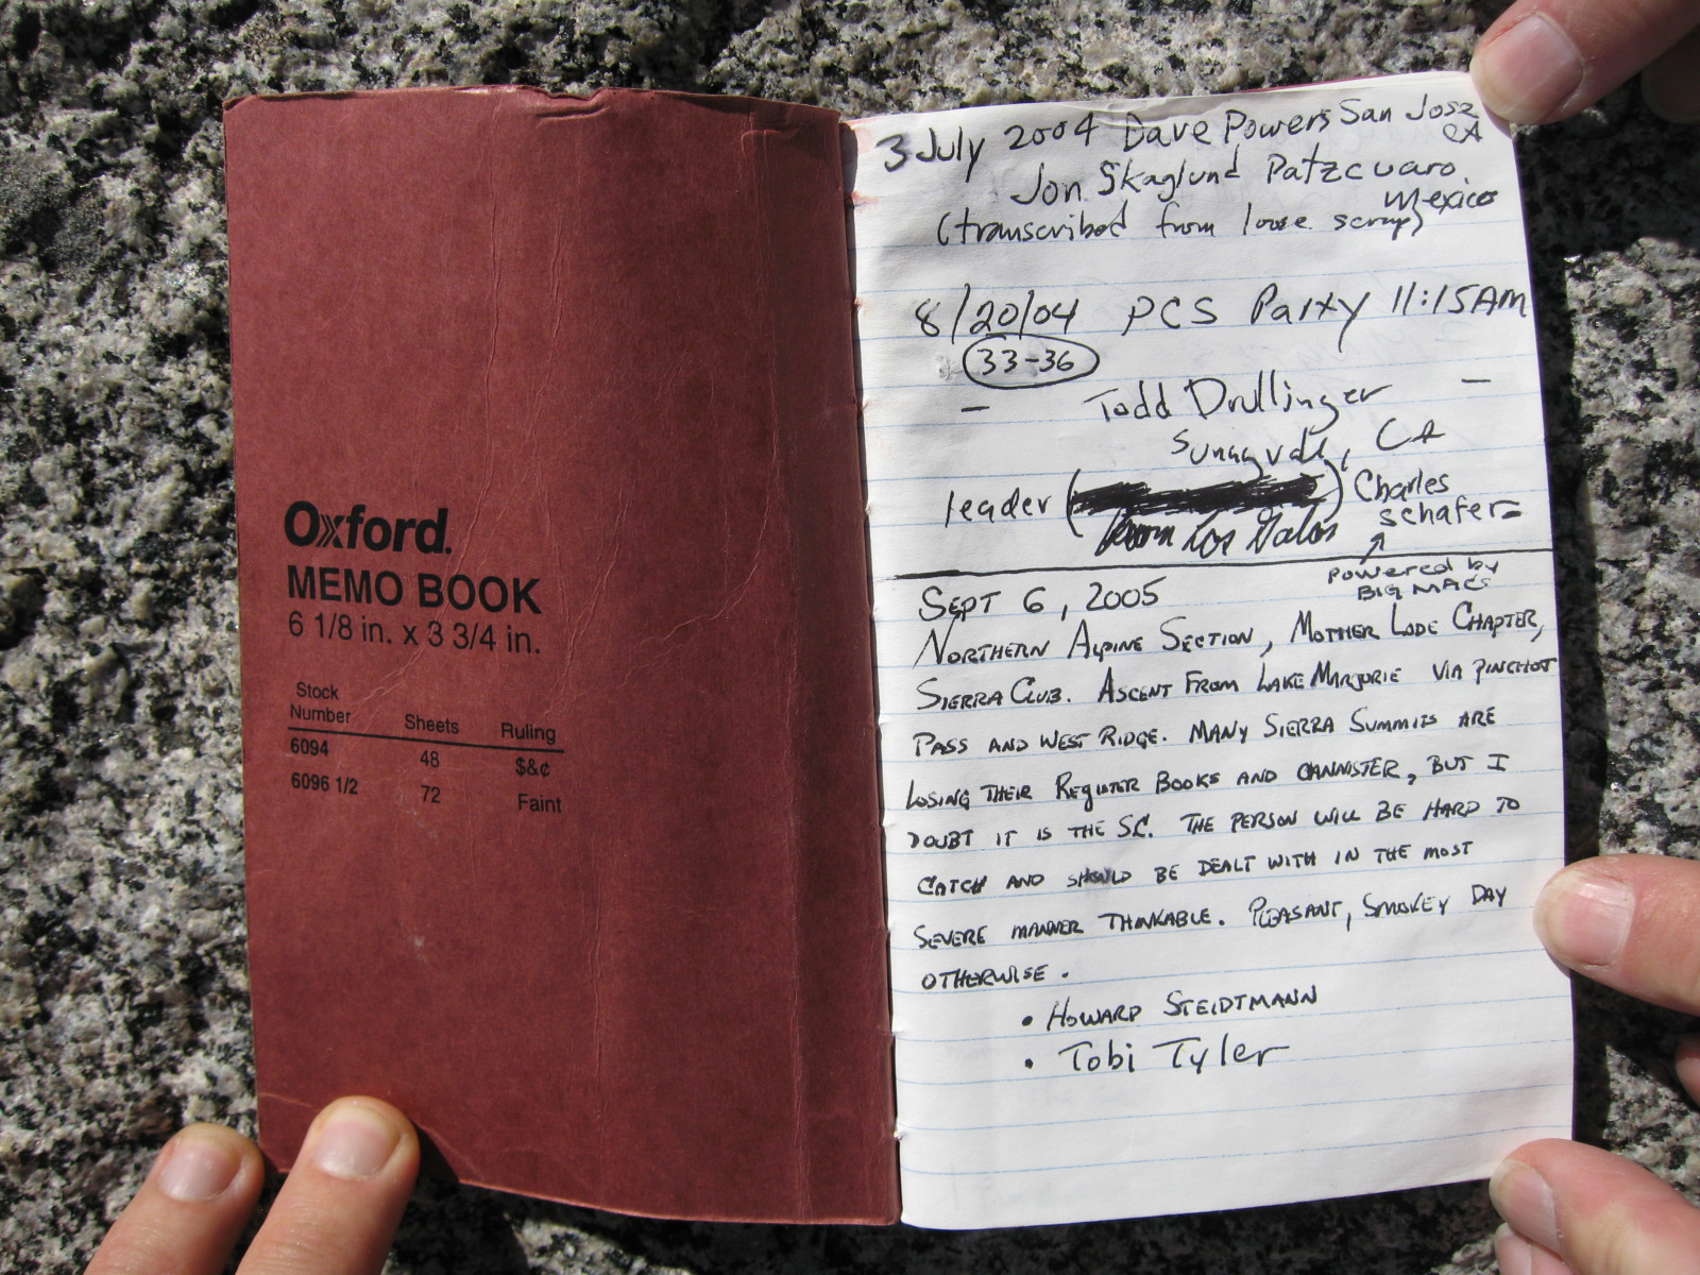 Oxford.
MEMO BOOK
6 1/8 in. x 3 3/4 in.
Stock
Number Sheets Ruling
6094 48 $&¢
6096 1/2 72 Faint
3 July 2004 Dave Powers San Jose
CA
Jon Skaglund Patzcuaro,
Mexico
(transcribed from loose scrap)
8/20/04 PCS Party 11:15AM
33-36
- Todd Drullinger -
Sunnyvale, CA
leader ( ) Charles
Schafer
from Los Gatos
powered by
BIG MACS
SEPT 6, 2005
NORTHERN ALPINE SECTION, MOTHER LODE CHAPTER,
SIERRA CLUB. ASCENT FROM LAKE MARJORIE VIA PINCHOT
PASS AND WEST RIDGE. MANY SIERRA SUMMITS ARE
LOSING THEIR REGISTER BOOKS AND CANNISTER, BUT I
DOUBT IT IS THE SC. THE PERSON WILL BE HARD TO
CATCH AND SHOULD BE DEALT WITH IN THE MOST
SEVERE MANNER THINKABLE. PLEASANT, SMOKEY DAY
OTHERWISE.
• HOWARD STEIDTMANN
• Tobi Tyler